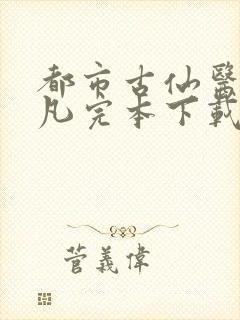 都市古仙醫
凡完本下載
菅義偉